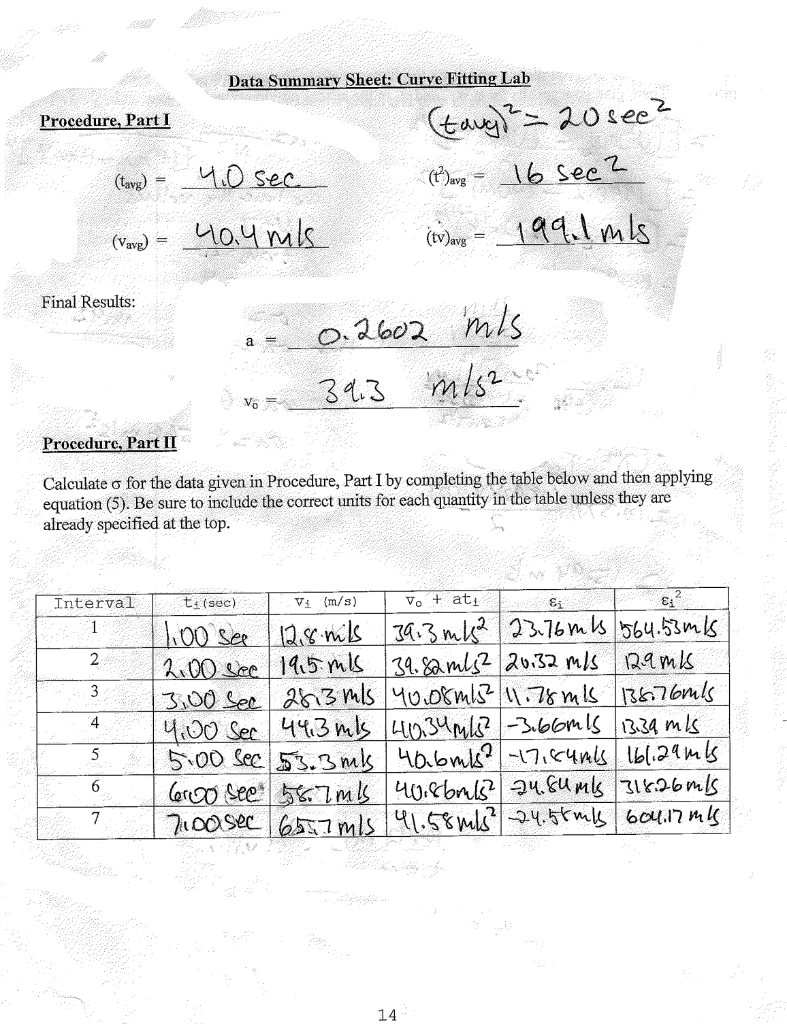 Data Summary Sheet: Curve Fitting Lab
Procedure, Part I
(tavg)² = 20 sec²
(tavg) = 4.0 sec
(t²)avg = 16 sec²
(vavg) = 40.4 m/s
(tv)avg = 199.1 m/s
Final Results:
a = 0.2602 m/s
vo = 39.3 m/s²
Procedure, Part II
Calculate σ for the data given in Procedure, Part I by completing the table below and then applying
equation (5). Be sure to include the correct units for each quantity in the table unless they are
already specified at the top.
Interval ti(sec) vi (m/s) vo + ati εi εi²
1 1.00 sec 12.8 m/s 39.3 m/s² 23.76 m/s 564.53 m/s
2 2.00 sec 19.5 m/s 39.82 m/s² 20.32 m/s 12.9 m/s
3 3.00 sec 28.3 m/s 40.08 m/s² 11.78 m/s 138.76 m/s
4 4.00 sec 44.3 m/s 40.34 m/s² -3.66 m/s 13.39 m/s
5 5.00 sec 53.3 m/s 40.6 m/s² -17.84 m/s 161.29 m/s
6 6.00 sec 58.7 m/s 40.86 m/s² -24.84 m/s 318.26 m/s
7 7.00 sec 65.7 m/s 41.58 m/s² -24.58 m/s 604.17 m/s
14